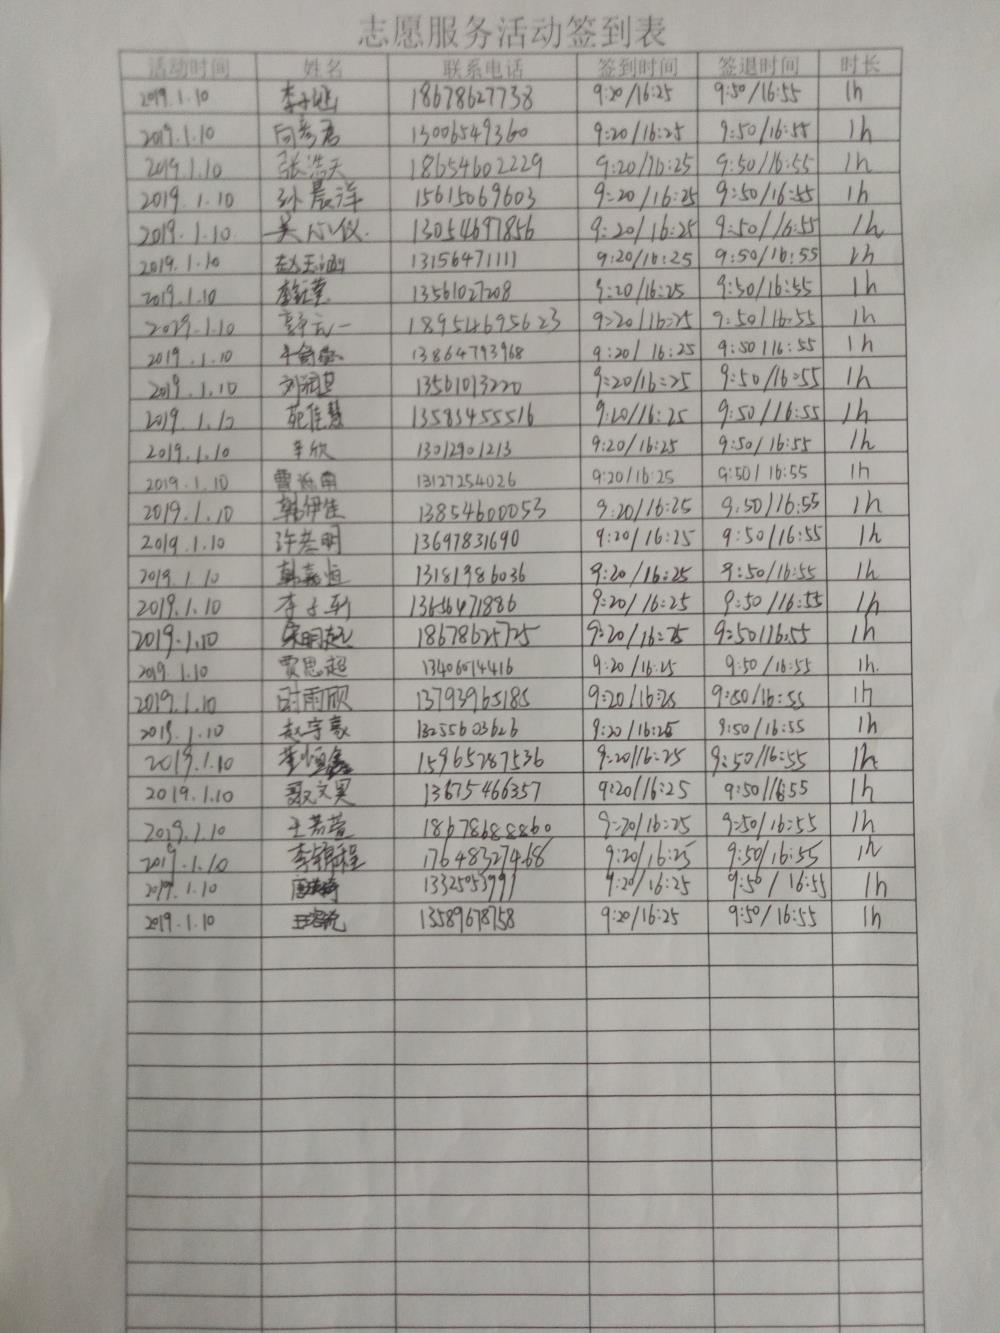 志愿服务活动签到表
活动时间 姓名 联系电话 签到时间 签退时间 时长
2019.1.10 李子涵 18678627738 9:20/16:25 9:50/16:55 1h
2019.1.10 13006549360 9:20/16:25 9:50/16:55 1h
2019.1.10 张浩天 18654602229 9:20/16:25 9:50/16:55 1h
2019.1.10 孙晨洋 15615069603 9:20/16:25 9:50/16:55 1h
2019.1.10 吴心仪 13054697856 9:20/16:25 9:50/16:55 1h
2019.1.10 赵玉涵 13156471111 9:20/16:25 9:50/16:55 1h
2019.1.10 13561027208 9:20/16:25 9:50/16:55 1h
2019.1.10 18954695623 9:20/16:25 9:50/16:55 1h
2019.1.10 13864793968 9:20/16:25 9:50/16:55 1h
2019.1.10 13561013220 9:20/16:25 9:50/16:55 1h
2019.1.10 苑佳慧 13583455516 9:20/16:25 9:50/16:55 1h
2019.1.10 辛欣 13012901213 9:20/16:25 9:50/16:55 1h
2019.1.10 13127254026 9:20/16:25 9:50/16:55 1h
2019.1.10 韩伊佳 13854600053 9:20/16:25 9:50/16:55 1h
2019.1.10 13697831690 9:20/16:25 9:50/16:55 1h
2019.1.10 韩嘉恒 13181986036 9:20/16:25 9:50/16:55 1h
2019.1.10 13656471886 9:20/16:25 9:50/16:55 1h
2019.1.10 18678625725 9:20/16:25 9:50/16:55 1h
2019.1.10 贾思超 13406014416 9:20/16:25 9:50/16:55 1h.
2019.1.10 时雨欣 13793965185 9:20/16:25 9:50/16:55 1h
2019.1.10 赵宇豪 13255603626 9:20/16:25 9:50/16:55 1h
2019.1.10 董恒鑫 15965287536 9:20/16:25 9:50/16:55 1h
2019.1.10 聂文昊 13675466357 9:20/16:25 9:50/16:55 1h
2019.1.10 王若萱 18678688860 9:20/16:25 9:50/16:55 1h
2019.1.10 李锦程 17648327468 9:20/16:25 9:50/16:55 1h
2019.1.10 13325053991 9:20/16:25 9:50/16:55 1h
2019.1.10 13589678758 9:20/16:25 9:50/16:55 1h